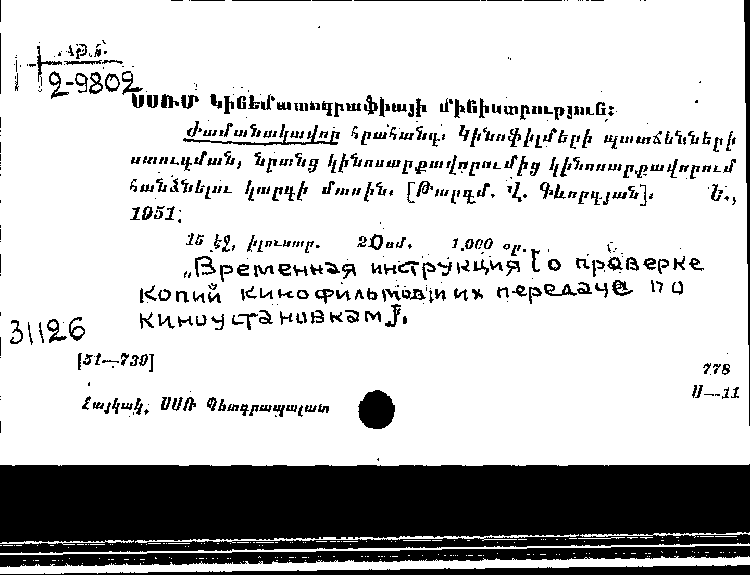 2-9802
ՍՍՌՄ Կինեմատոգրաֆիայի մինիստրություն:
Ժամանակավոր հրահանգ: Կինոֆիլմերի պատճենների
ստուգման, նրանց կինոսարքավորումից կինոսարքավորում
հանձնելու կարգի մասին. [Թարգմ. Վ. Գևորգյան]: Ե.,
1951:
15 էջ, իլուստր. 20սմ. 1.000 օր.
„Временная инструкция [о проверке
копий кинофильмов и их передаче по
киноустановкам].
31126
[51—739]
778
Ս—11
Հայկակ, ՍՍՌ Պետգրապալատ